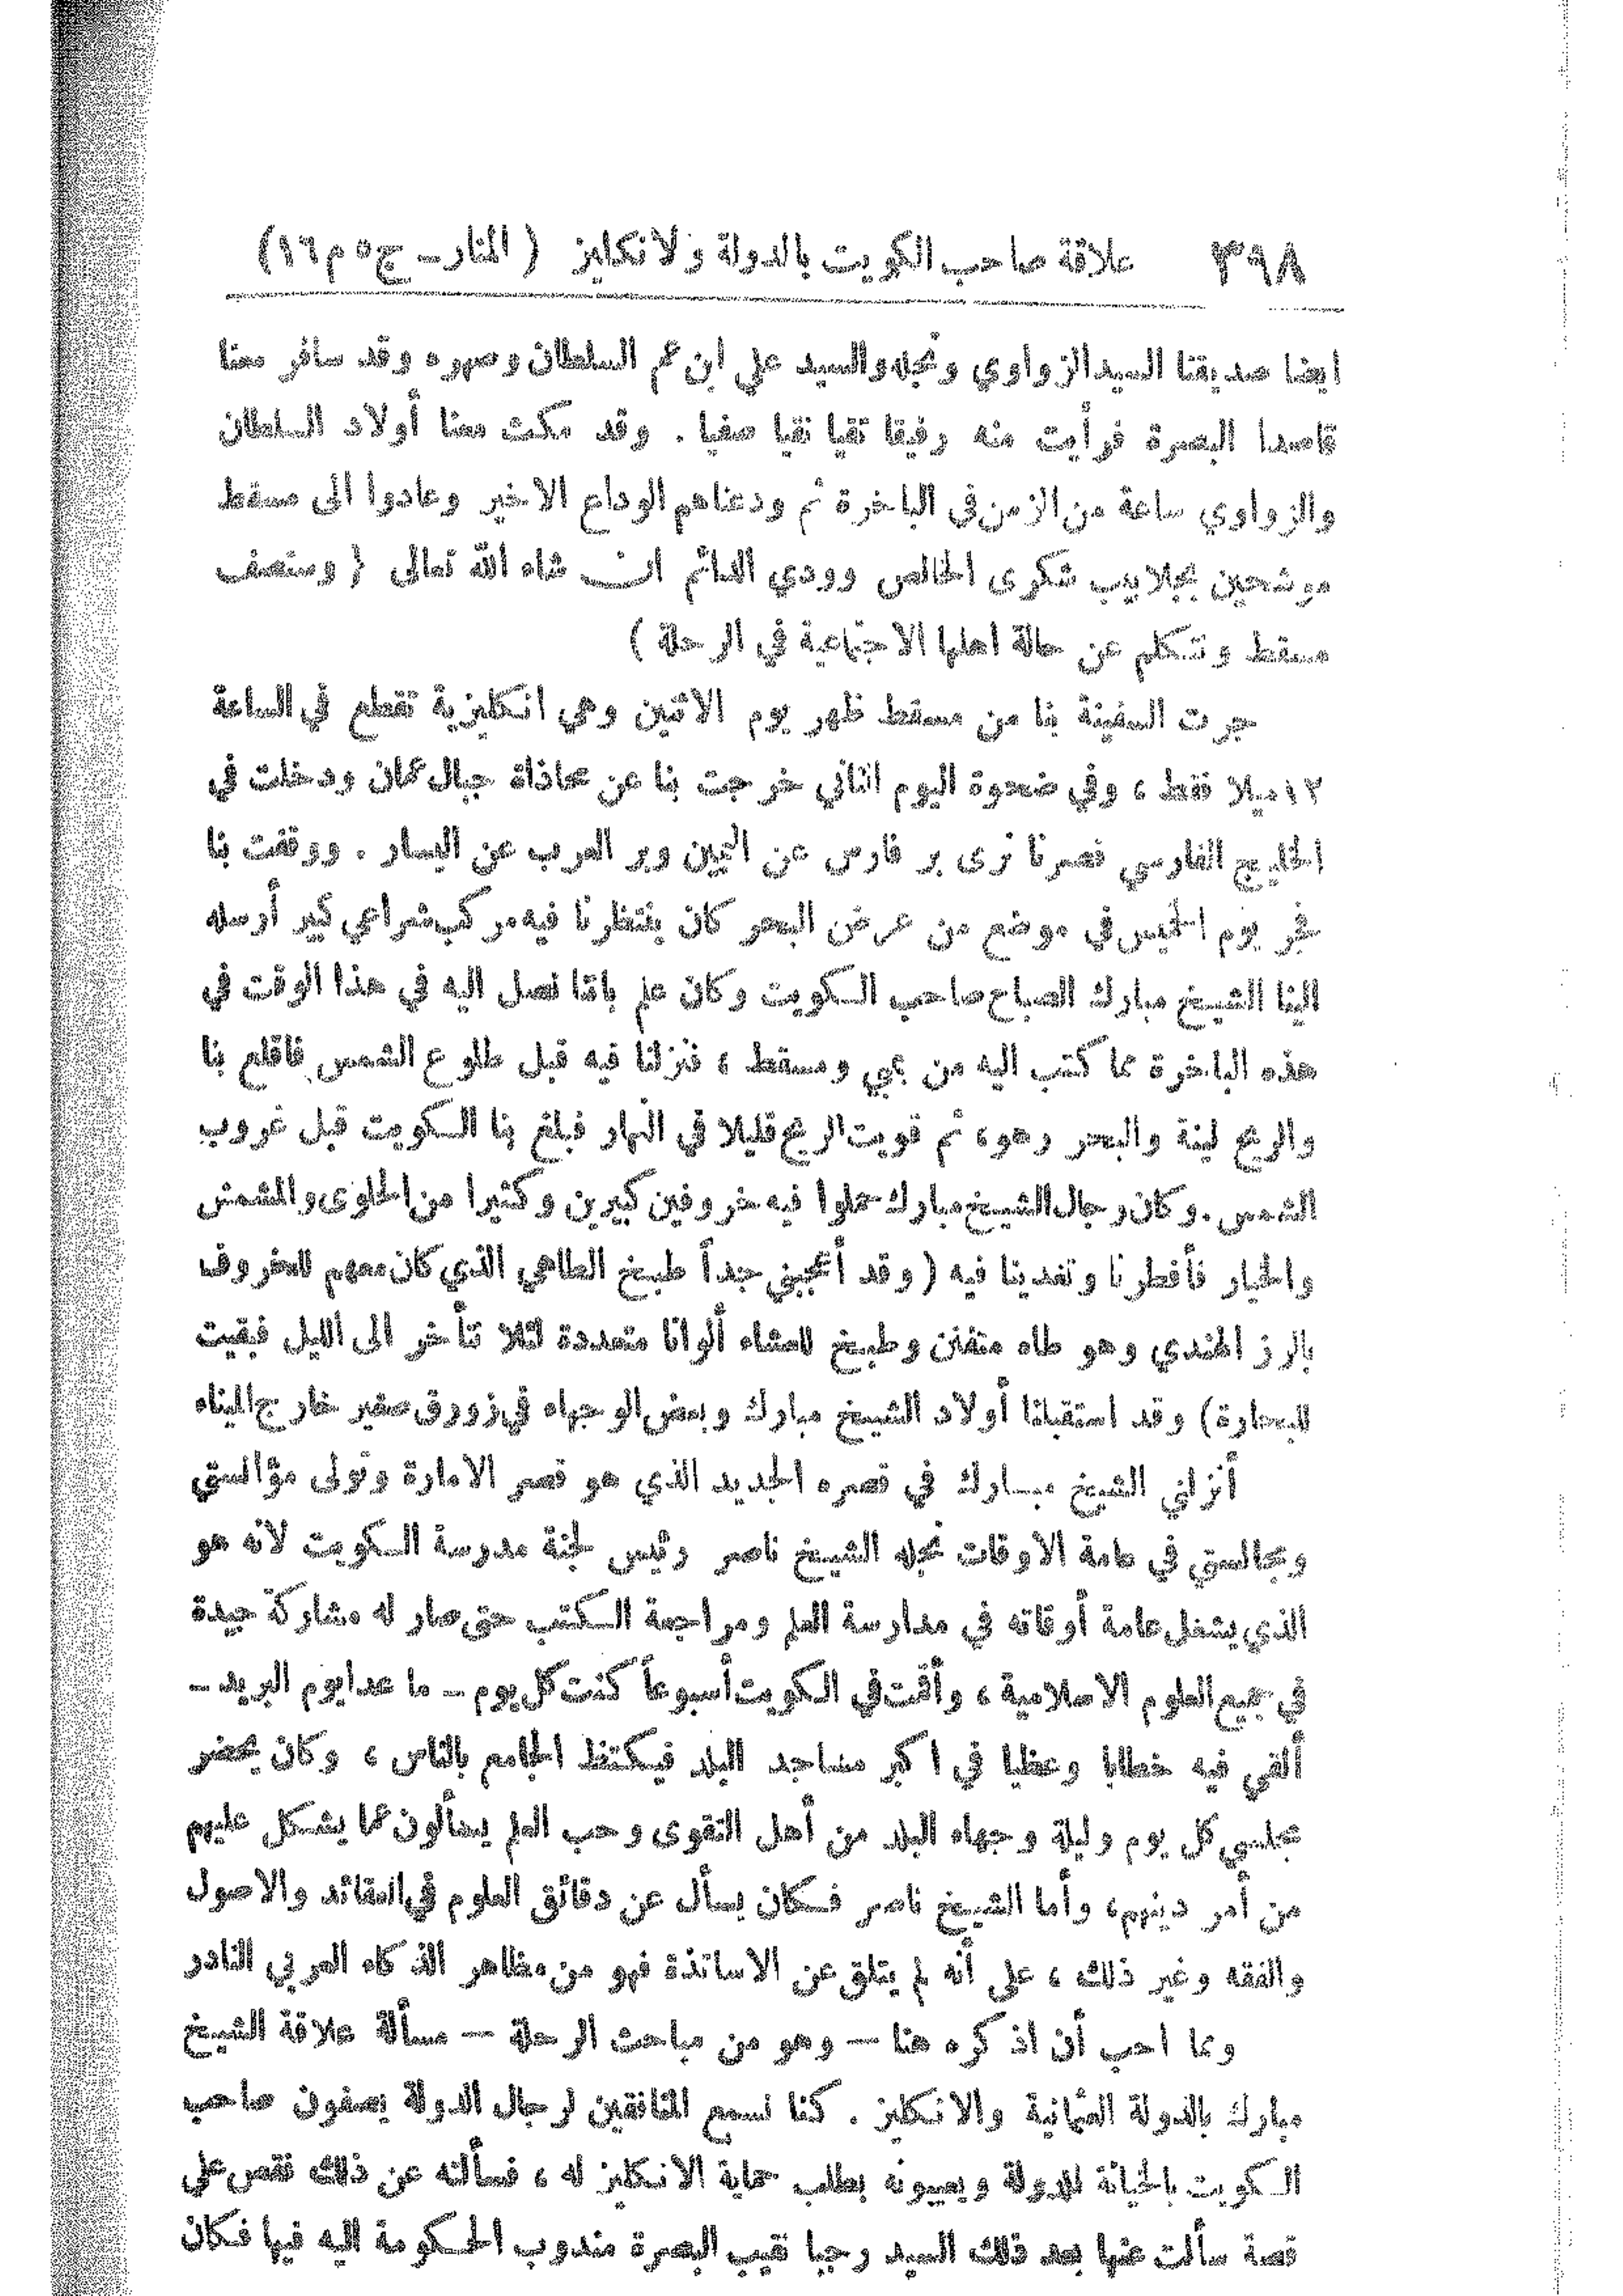 ٣٩٨ علاقة صاحب الكويت بالدولة ولانكليز ( المنار ـ ج٥ م١٦)
ايضا صديقنا السيد الزواوي ونجله والسيد علي ابن عم السلطان وصهره وقد سافر معنا
قاصدا البصرة فرأيت منه رفيقا تقيا نقيا صفيا . وقد مكث معنا أولاد السلطان
والزواوي ساعة من الزمن في الباخرة ثم ودعناهم الوداع الاخير وعادوا الى مسقط
موشحين بجلابيب شكرى الخالص وودي الدائم ان شاء الله تعالى ( وسنصف
مسقط ونتكلم عن حالة اهلها الاجتماعية في الرحلة )
جرت السفينة بنا من مسقط ظهر يوم الاثنين وهي انكليزية تقطع في الساعة
١٢ميلا فقط ، وفي ضحوة اليوم الثاني خرجت بنا عن محاذاة جبال عمان ودخلت في
الخليج الفارسي فصرنا نرى بر فارس عن اليمين وبر العرب عن اليسار . ووقفت بنا
فجر يوم الخميس في موضع من عرض البحر كان ينتظرنا فيه مركب شراعي كبير أرسله
الينا الشيخ مبارك الصباح صاحب الكويت وكان علم باننا نصل اليه في هذا الوقت في
هذه الباخرة مما كتب اليه من بمبي ومسقط ، فنزلنا فيه قبل طلوع الشمس فاقلع بنا
والريح لينة والبحر رهو، ثم قويت الريح قليلا في النهار فبلغ بنا الكويت قبل غروب
الشمس . وكان رجال الشيخ مبارك حملوا فيه خروفين كبيرين وكثيرا من الحلوى والمشمش
والخيار فأفطرنا وتغدينا فيه (وقد أعجبني جداً طبخ الطاهي الذي كان معهم للخروف
بالرز الهندي وهو طاه متفنن وطبخ للعشاء ألوانا متعددة لئلا تأخر الى الليل فبقيت
للبحارة) وقد استقبلنا أولاد الشيخ مبارك وبعض الوجهاء في زورق صغير خارج الميناء
أنزلني الشيخ مبارك في قصره الجديد الذي هو قصر الامارة وتولى مؤانستي
ومجالستي في عامة الاوقات نجله الشيخ ناصر رئيس لجنة مدرسة الكويت لانه هو
الذي يشغل عامة أوقاته في مدارسة العلم ومراجعة الكتب حتى صار له مشاركة جيدة
في جميع العلوم الاسلامية ، وأقمت في الكويت أسبوعاً كنت كل يوم ـ ما عدا يوم البريد ـ
ألقي فيه خطابا وعظيا في اكبر مساجد البلد فيكتظ الجامع بالناس ، وكان يحضر
مجلسي كل يوم وليلة وجهاء البلد من أهل التقوى وحب العلم يسألون عما يشكل عليهم
من أمر دينهم، وأما الشيخ ناصر فكان يسأل عن دقائق العلوم في العقائد والاصول
والفقه وغير ذلك ، على أنه لم يتلق عن الاساتذة فهو من مظاهر الذكاء العربي النادر
ومما احب أن اذكره هنا — وهو من مباحث الرحلة — مسألة علاقة الشيخ
مبارك بالدولة العثمانية والانكليز . كنا نسمع المنافقين لرجال الدولة يصفون صاحب
الكويت بالخيانة للدولة ويعيبونه بطلب حماية الانكليز له ، فسألته عن ذلك فقص علي
قصة سألت عنها بعد ذلك السيد رجبا نقيب البصرة مندوب الحكومة اليه فيها فكان